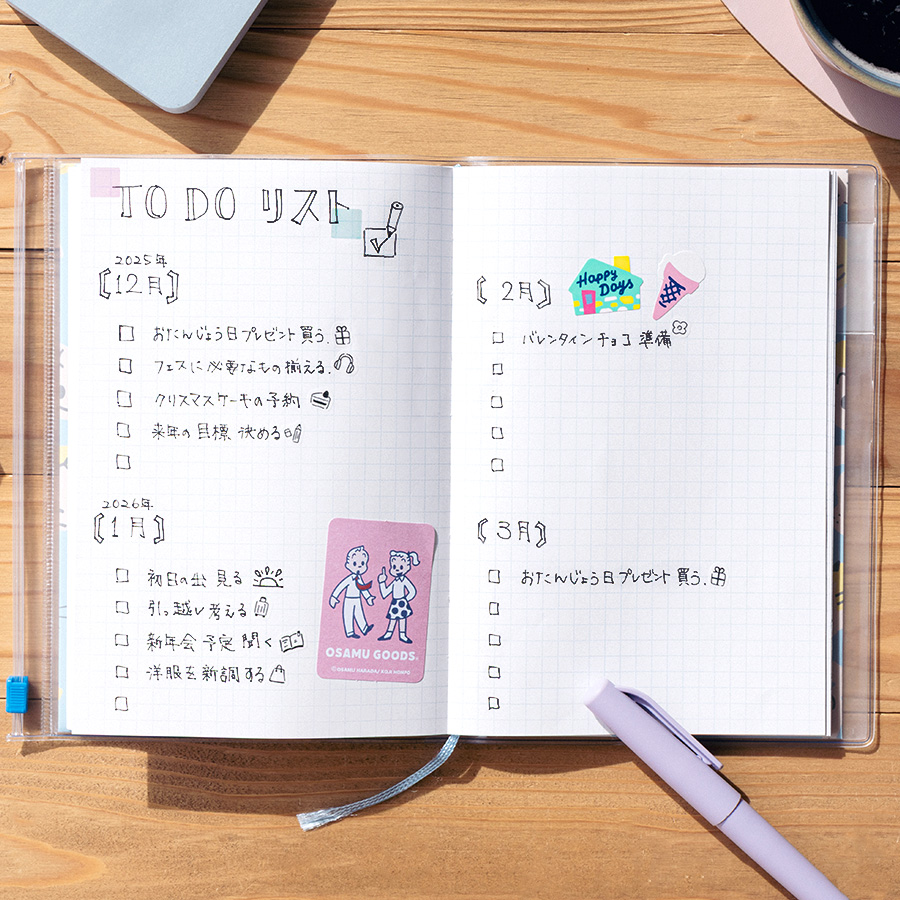 TO DO リスト
2025年
【12月】
おたんじょう日プレゼント買う.
フェスに必要なもの揃える.
クリスマスケーキの予約
来年の目標 決める
2026年
【1月】
初日の出 見る
引っ越し考える
新年会 予定 聞く
洋服を新調する
OSAMU GOODS®
© OSAMU HARADA/ KOJI HONPO
【2月】
Happy
Days
バレンタインチョコ 準備
【3月】
おたんじょう日プレゼント買う.